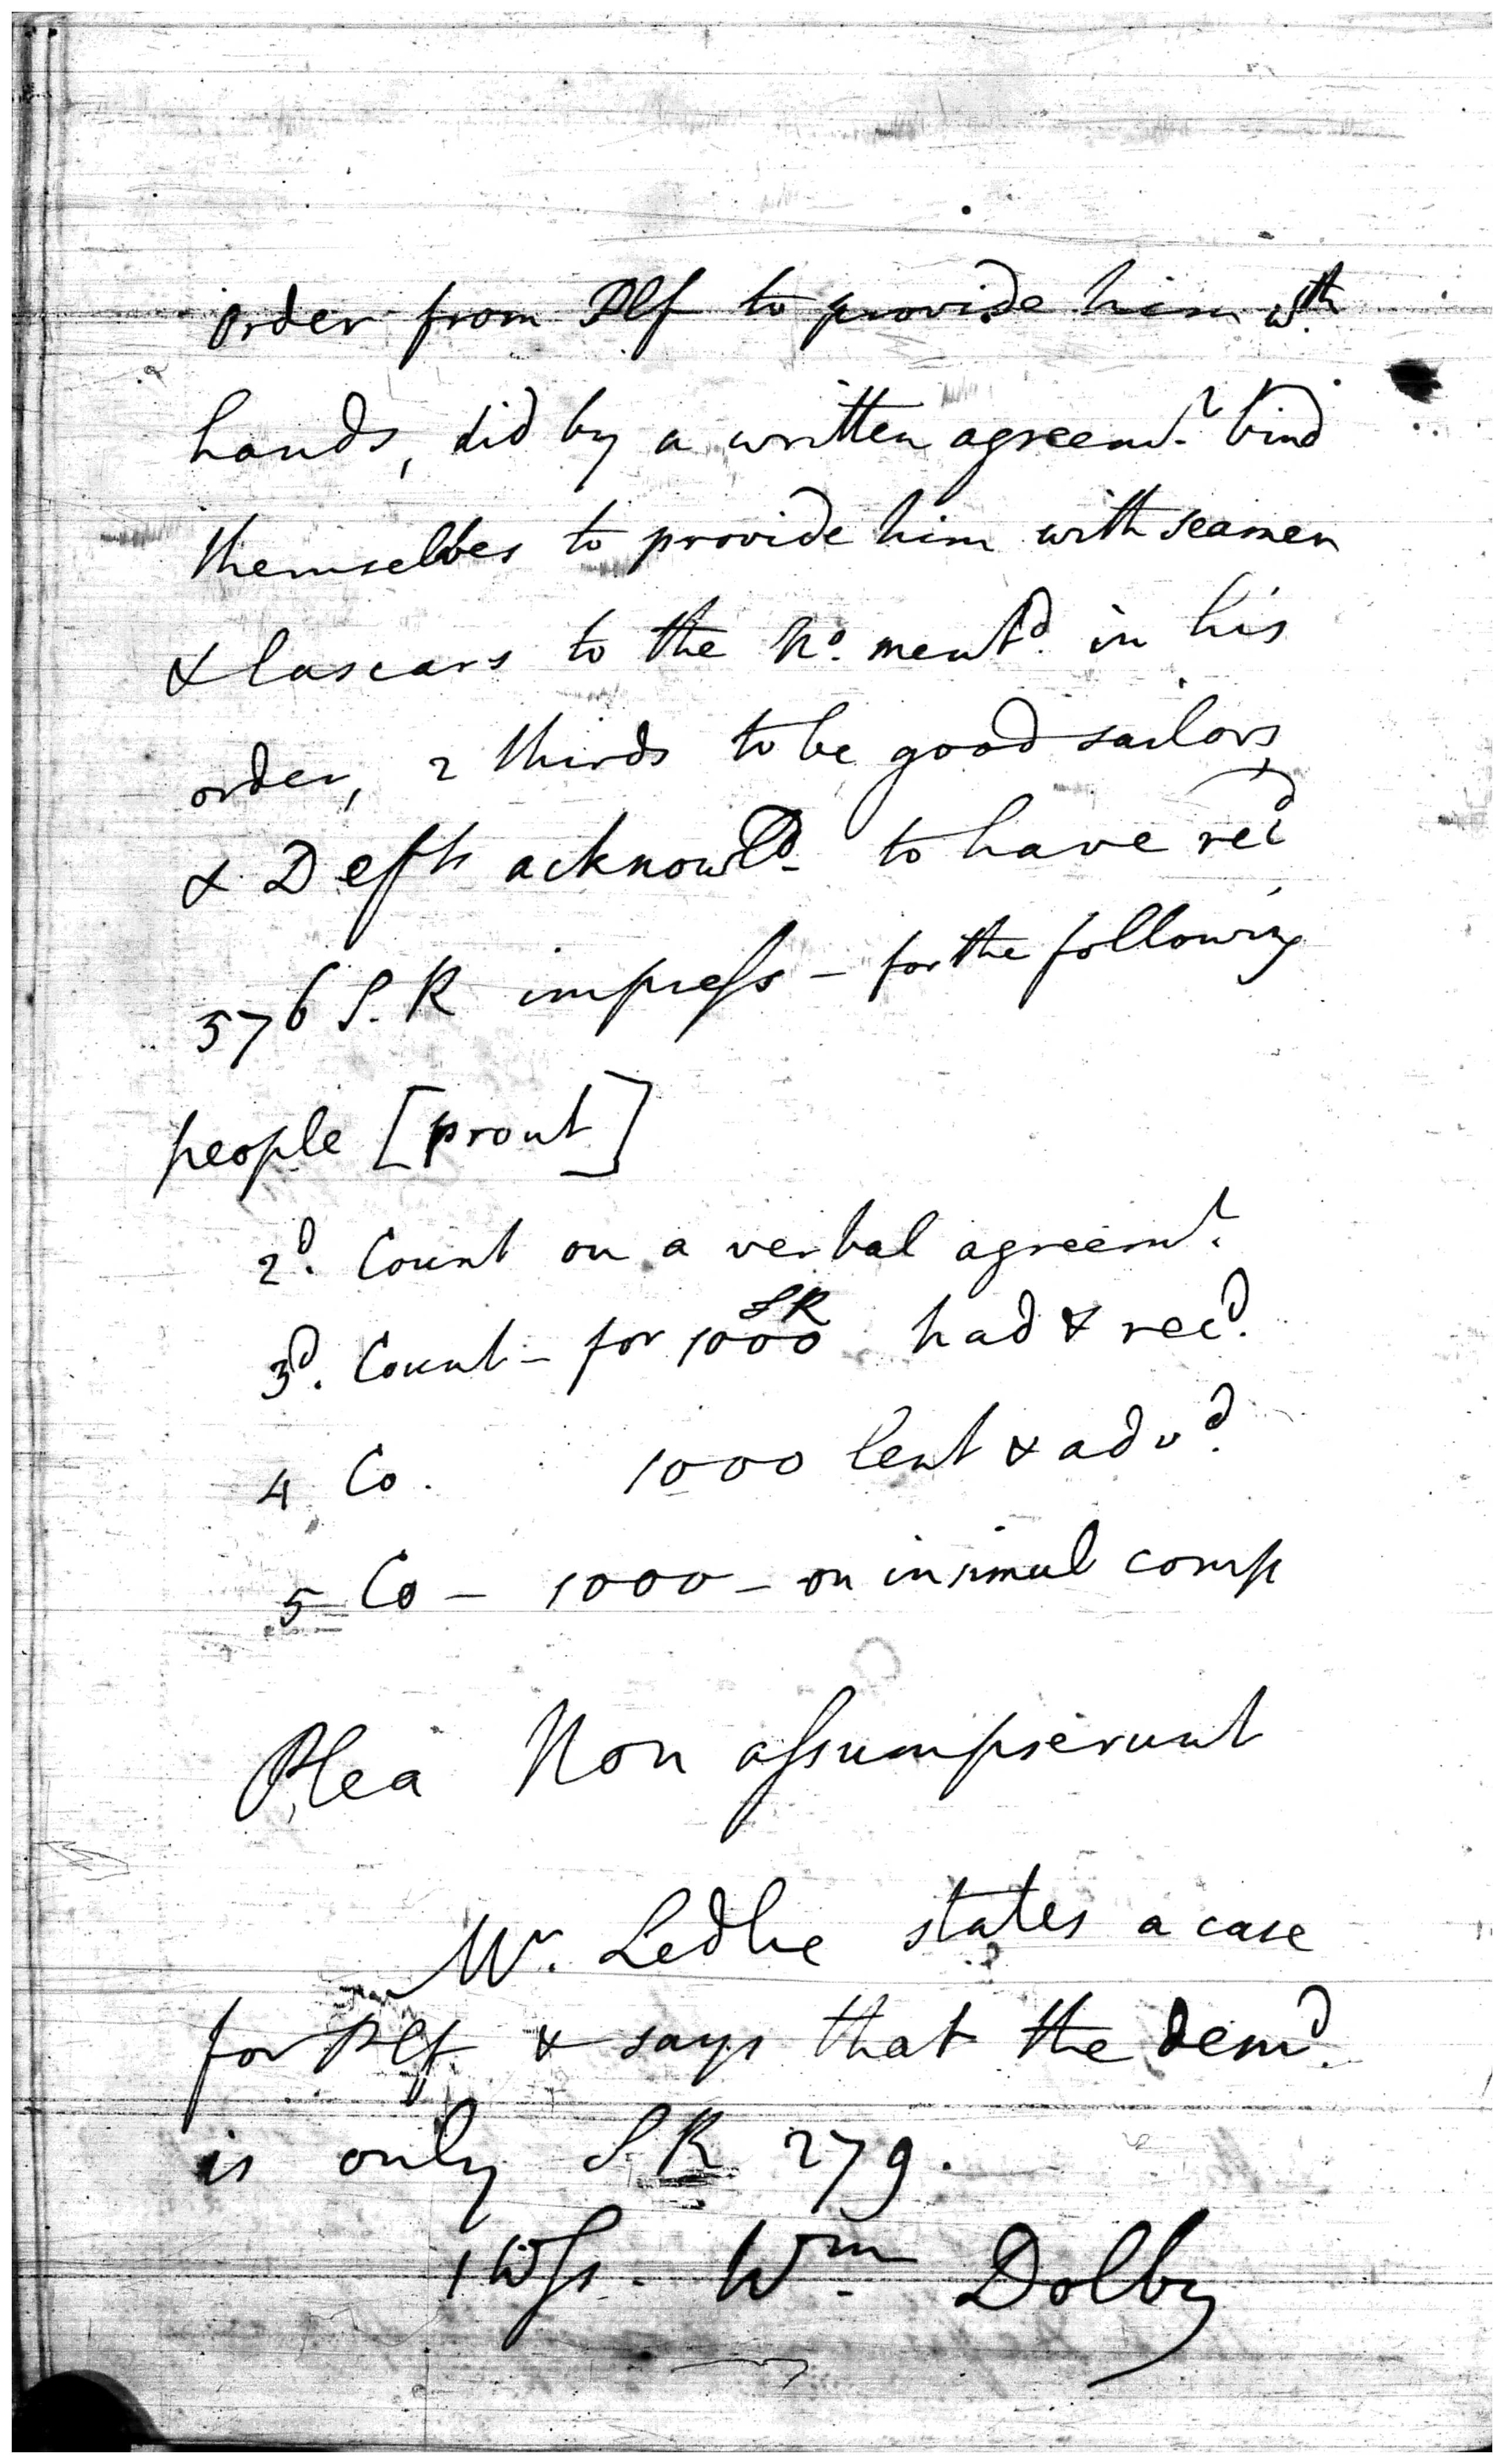 order from Plf to provide him wth
hands, did by a written agreemt. bind
themselves to provide him with seamen
& lascars to the No. mentd. in his
order, 2 thirds to be good sailors,
& Defts acknowld. to have recd
576 S.R impress - for the following
people [prout]
2d. Count on a verbal agreemt.
3d. Count - for 1000 SR had & recd.
4 Co. 1000 lent & advd.
5 Co - 1000 - on insimul comp
Plea Non assumpserunt
Mr. Ledlie states a case
for Plf. & says that the demd.
is only S.R 279.
1 Wss. Wm. Dolby